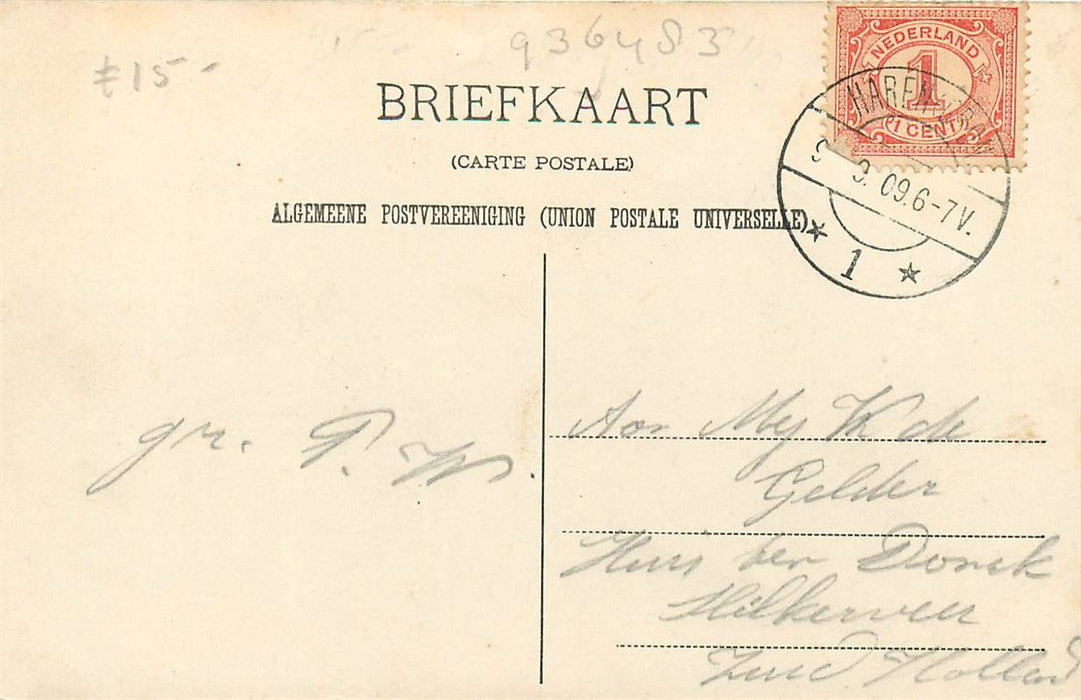 936483
£15-
NEDERLAND
1
1 CENT
BRIEFKAART
(CARTE POSTALE)
ALGEMEENE POSTVEREENIGING (UNION POSTALE UNIVERSELLE).
9. 09.6-7V.
1
gr. P.
Aan Mej K de
Gelder
Huis ter Donck
Zuid Holland